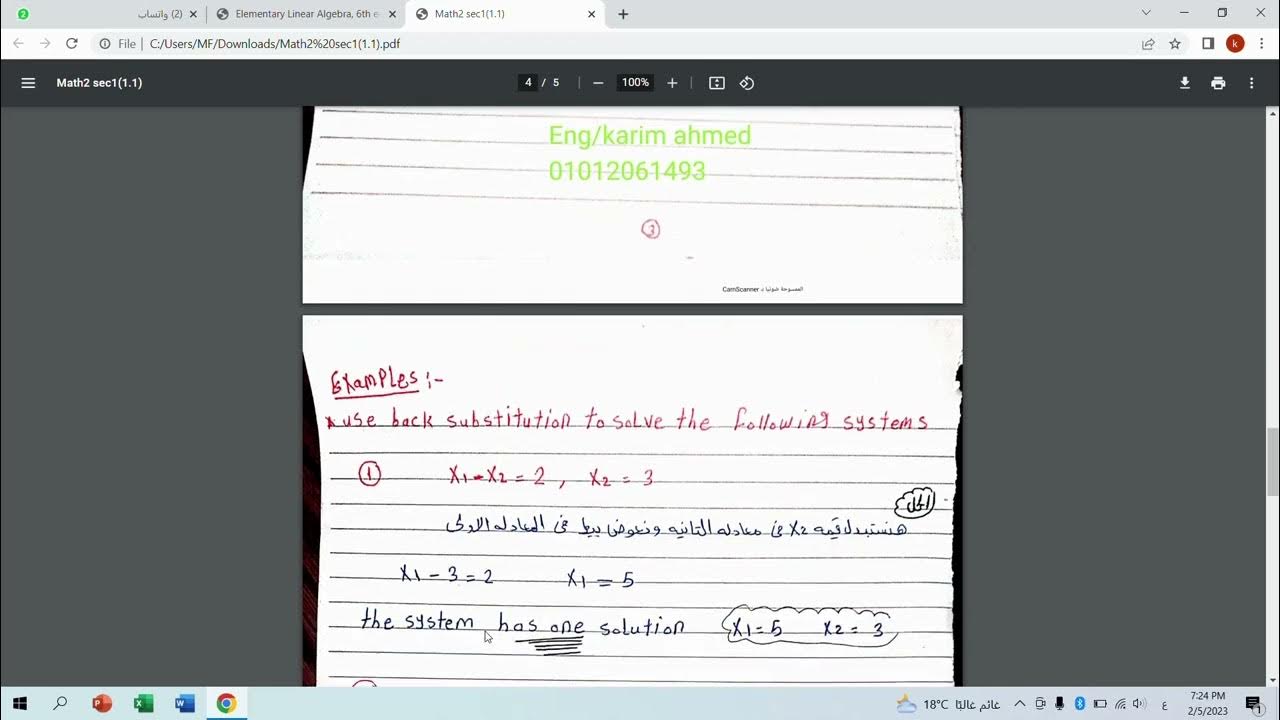 (2) واتساب
Elementary Linear Algebra, 6th e
Math2 sec1(1.1)
File
C:/Users/MF/Downloads/Math2%20sec1(1.1).pdf
k
Math2 sec1(1.1)
4 / 5
100%
Eng/karim ahmed
01012061493
3
الممسوحة ضوئيا بـ CamScanner
Examples:-
*use back substitution to solve the following systems
1 X1-X2=2, X2=3
الحل
هنستبدل قيمه X2 فى معادله التانيه ونعوض بيها فى المعادله الاولى
X1-3=2 X1=5
the system has one solution X1=5 X2=3
18°C غائم غالبًا
7:24 PM
2/5/2023
1